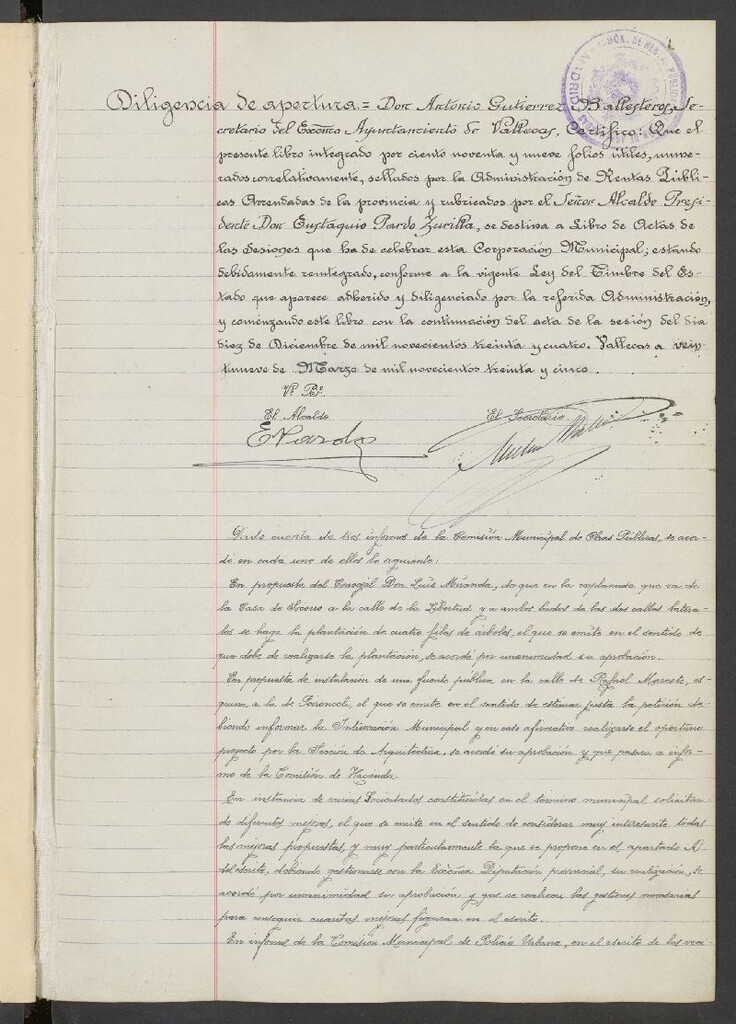 Diligencia de apertura.= Don Antonio Gutierrez Ballesteros, Se-
cretario del Excmo Ayuntamiento de Vallecas, Certifico: Que el
presente libro integrado por ciento noventa y nueve folios útiles, nume-
rados correlativamente, sellados por la Administración de Rentas Públi-
cas Arrendadas de la provincia y rubricados por el Señor Alcalde Presi-
dente Don Eustaquio Pardo Zurilla, se destina a Libro de Actas de
las Sesiones que ha de celebrar esta Corporación Municipal; estando
debidamente reintegrado, conforme a la vigente Ley del Timbre del Es-
tado que aparece adherido y diligenciado por la referida Administración,
y comenzando este libro con la continuación del acta de la sesión del dia
diez de Diciembre de mil novecientos treinta y cuatro. Vallecas a vein-
tinueve de Marzo de mil novecientos treinta y cinco.
Vº Bº
El Alcalde El Secretario.
EPardo
Dada cuenta de tres informes de la Comisión Municipal de Obras Públicas, se acor-
dó en cada uno de ellos lo siguiente:
En propuesta del Concejal Don Luis Miranda, de que en la explanada que va de
la Casa de Socorro a la calle de la Libertad y a ambos lados de las dos calles latera-
les se haga la plantación de cuatro filas de árboles, el que se emite en el sentido de
que debe de realizarse la plantación, se acordó por unanimidad su aprobación.
En propuesta de instalación de una fuente pública en la calle de Rafael Marcote, es-
quina a la de, el que se emite en el sentido de estimar justa la petición de-
biendo informar la Intervención Municipal y en caso afirmativo realizarse el oportuno
proyecto por la Sección de Arquitectura, se acordó su aprobación y que pasara a infor-
me de la Comisión de Hacienda.
En instancia de varias Sociedades constituidas en el término municipal, solicitan-
do diferentes mejoras, el que se emite en el sentido de considerar muy interesante todas
las mejoras propuestas, y muy particularmente la que se propone en el apartado A.
del escrito, debiendo gestionarse con la Excma Diputación provincial, su realización, se
acordó por unanimidad su aprobación y que se realicen las gestiones necesarias
para conseguir cuantas mejoras figuran en el escrito.
En informe de la Comisión Municipal de Policia Urbana, en el escrito de los veci-